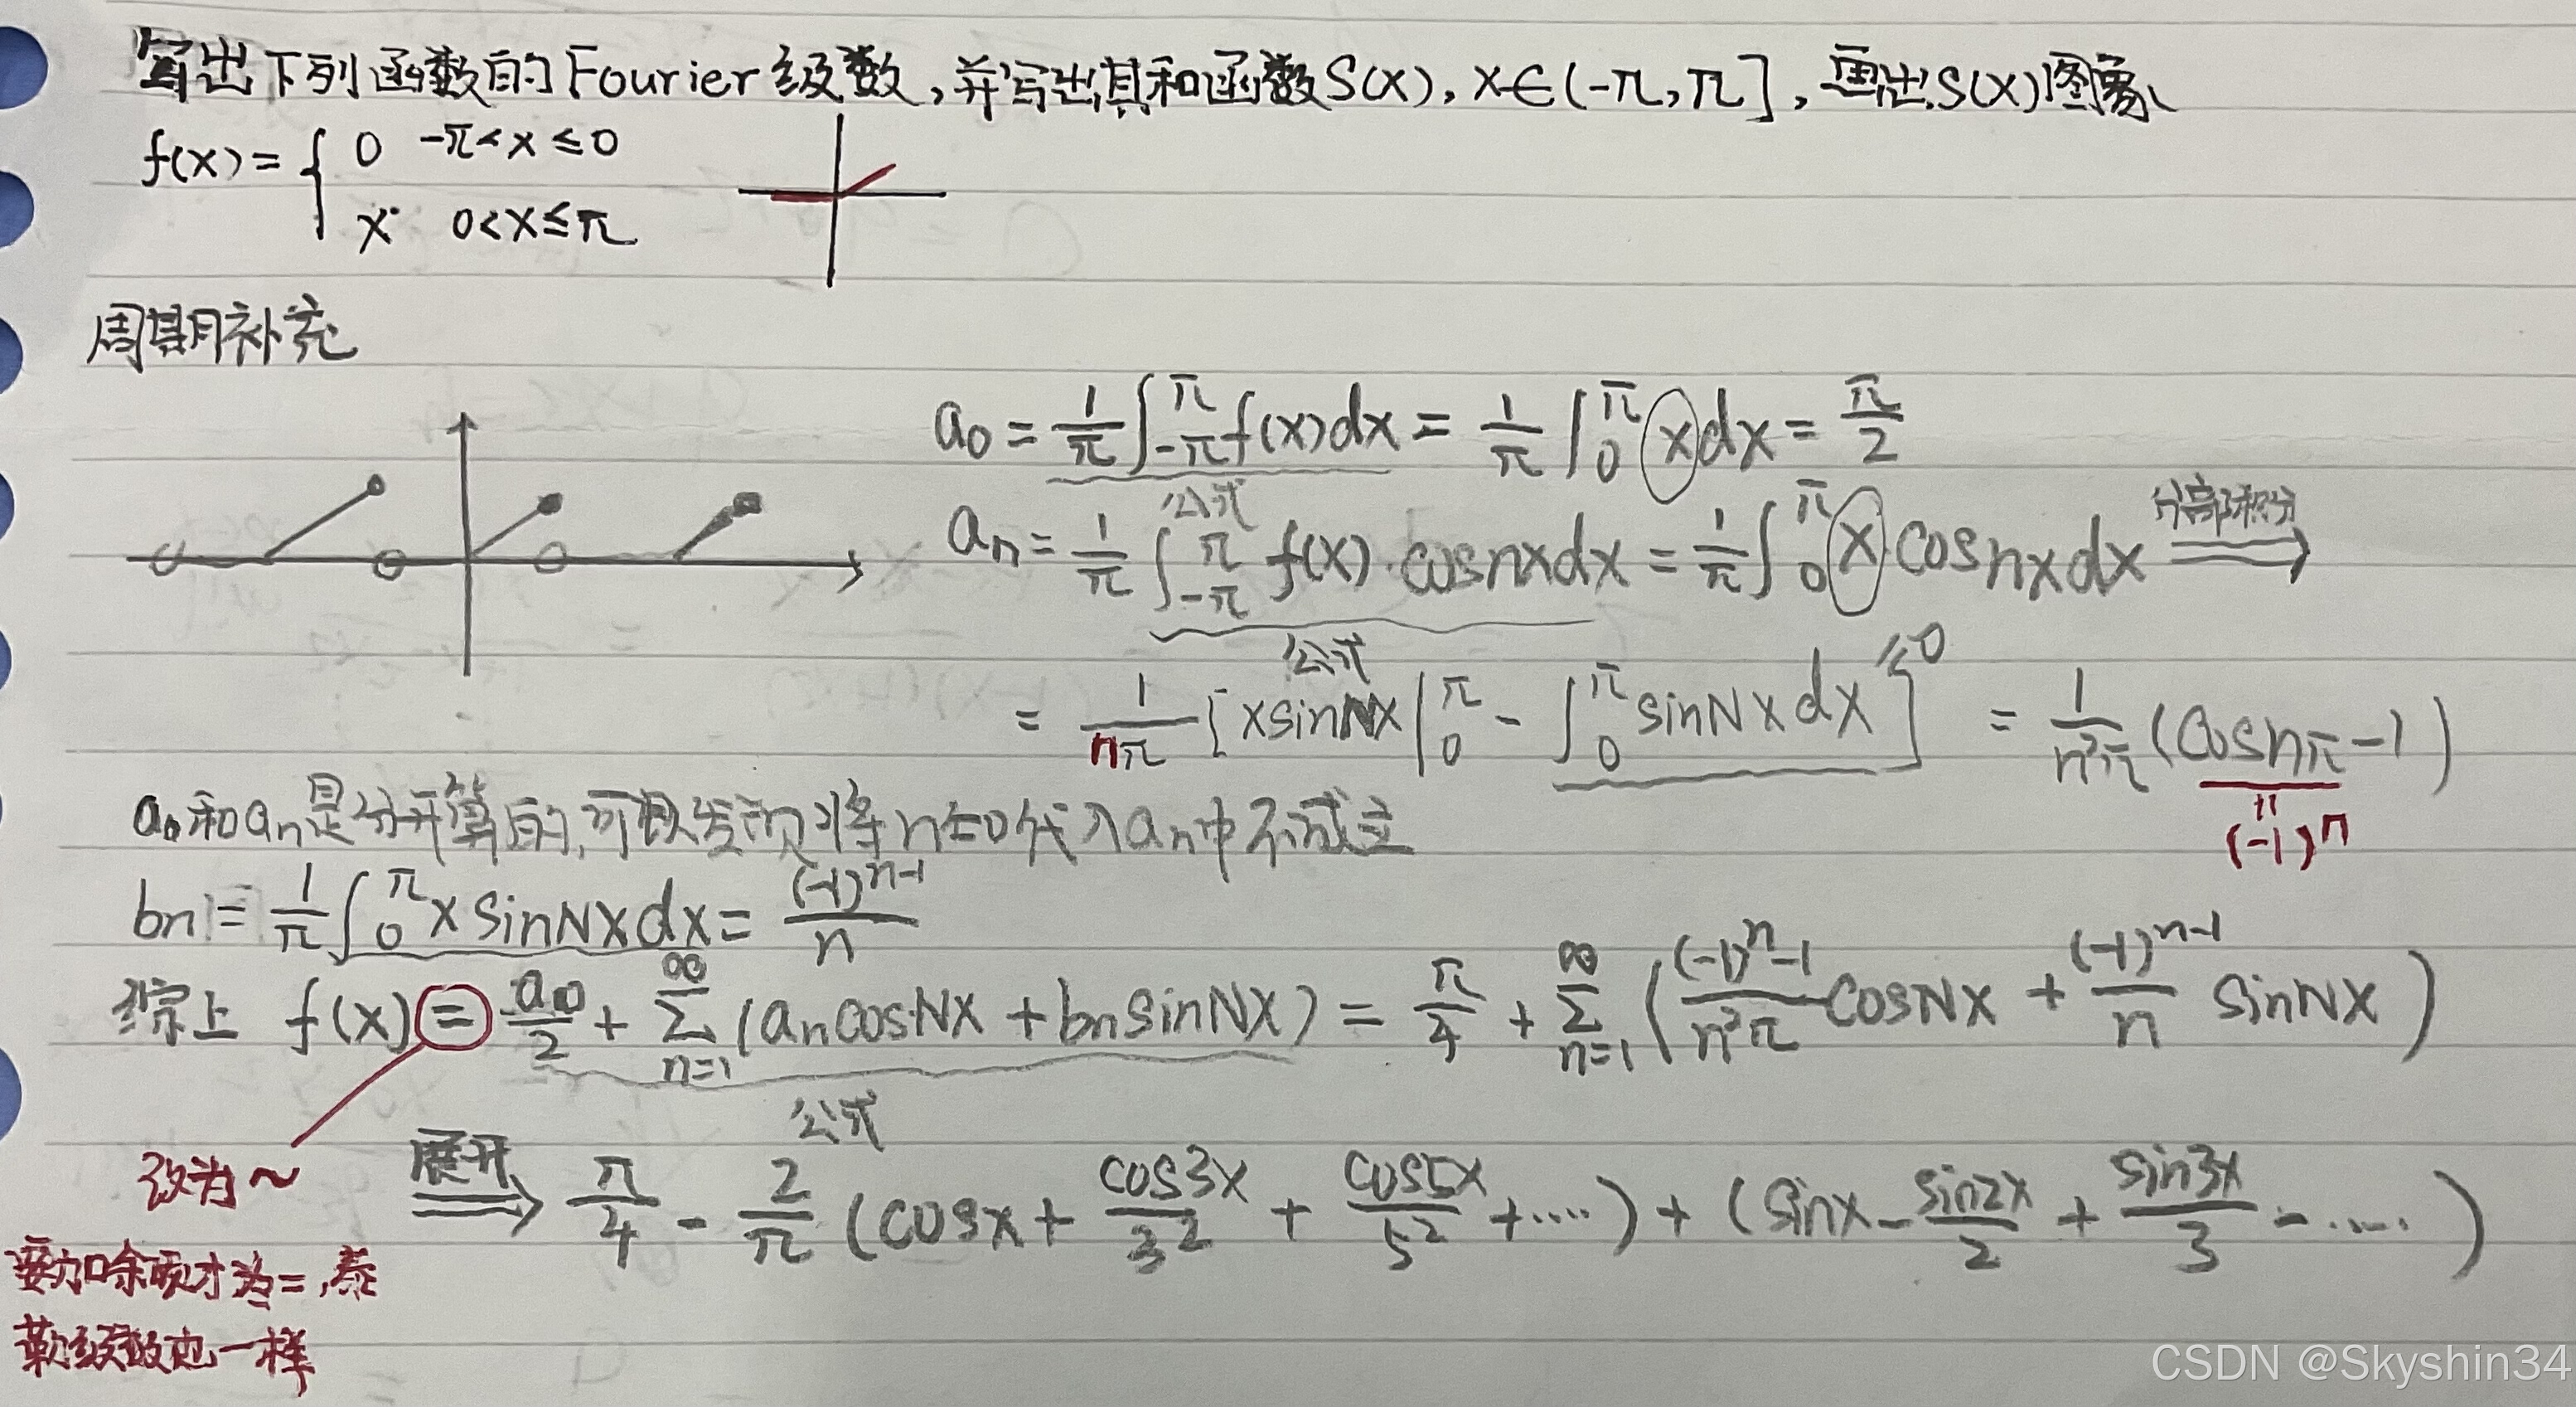 写出下列函数的Fourier级数,并写出其和函数S(x), x∈(-π,π],画出S(x)图象
f(x)={ 0 -π<x≤0
x 0<x≤π
周期补充
a₀ = 1/π ∫_{-π}^{π} f(x)dx = 1/π ∫_0^π x dx = π/2
公式
aₙ = 1/π ∫_{-π}^{π} f(x)·cosnxdx = 1/π ∫_0^π x cosnxdx 分部积分 ⇒
公式
= 1/(nπ) [xsinNx|_0^π - ∫_0^π sinNxdx] = 1/(n²π) (cosnπ-1)
0
= (-1)ⁿ
a₀和aₙ是分开算的,可以发现将n=0代入aₙ中不成立
bn = 1/π ∫_0^π x sinNxdx = (-1)^{n-1}/n
综上 f(x) = a₀/2 + ∑_{n=1}^∞ (aₙcosNx + bₙsinNx) = π/4 + ∑_{n=1}^∞ ( ((-1)ⁿ-1)/(n²π) cosNx + (-1)^{n-1}/n sinNx )
公式
改为~
展开 ⇒ π/4 - 2/π (cosx + cos3x/3² + cos5x/5² + ····) + (sinx - sin2x/2 + sin3x/3 - ·····)
要加余项才为=,泰
勒级数也一样
CSDN @Skyshin34